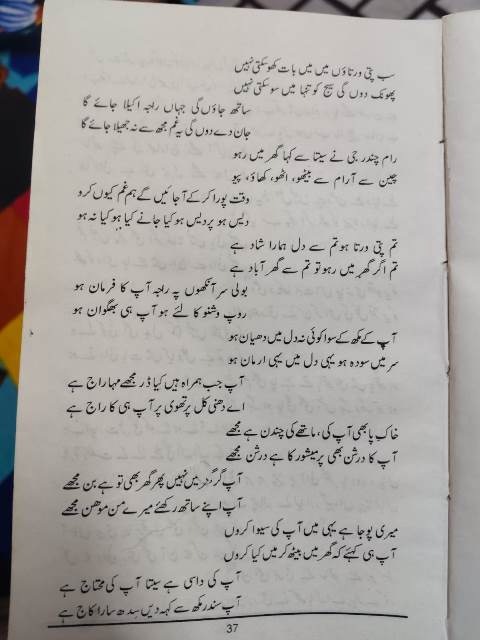 سب پتی ورتاؤں میں میں بات کھو سکتی نہیں
پھونک دوں گی سیج کو تنہا میں سو سکتی نہیں
ساتھ جاؤں گی جہاں راجہ اکیلا جائے گا
جان دے دوں گی یہ غم مجھ سے نہ جھیلا جائے گا
رام چندر جی نے سیتا سے کہا گھر میں رہو
چین سے آرام سے بیٹھو، اٹھو، کھاؤ، پیو
وقت پورا کر کے آ جائیں گے ہم غم کیوں کرو
دیس ہو پردیس ہو کیا جانے کیا ہو کیا نہ ہو
تم پتی ورتا ہو تم سے دل ہمارا شاد ہے
تم اگر گھر میں رہو تو تم سے گھر آباد ہے
بولی سر آنکھوں پہ راجہ آپ کا فرمان ہو
روپ وشنو کا لئے ہو آپ ہی بھگوان ہو
آپ کے مکھ کے سوا کوئی نہ دل میں دھیان ہو
سر میں سودہ ہو یہی دل میں یہی ارمان ہو
آپ جب ہمراہ ہیں کیا ڈر مجھے مہاراج ہے
اے دھنی کل پرتھوی پر آپ ہی کا راج ہے
خاک پا بھی آپ کی، ماتھے کی چندن ہے مجھے
آپ کا درشن بھی پرمیشور کا ہے درشن مجھے
آپ گر گھر میں نہیں پھر گھر بھی تو ہے بن مجھے
آپ اپنے ساتھ رکھئے میرے من موھن مجھے
میری پوجا ہے یہی میں آپ کی سیوا کروں
آپ ہی کہئے کہ گھر میں بیٹھ کر میں کیا کروں
آپ کی داسی ہے سیتا آپ کی محتاج ہے
آپ سندر مکھ سے کہہ دیں سدھ سارا کاج ہے
37